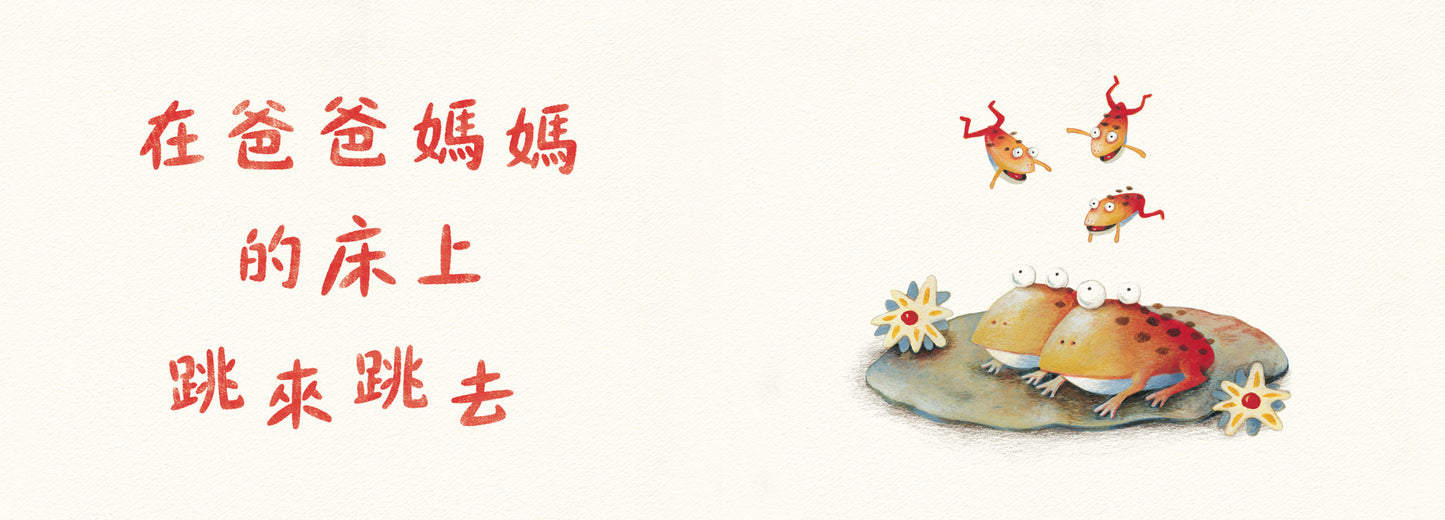 在爸爸媽媽
的床上
跳來跳去